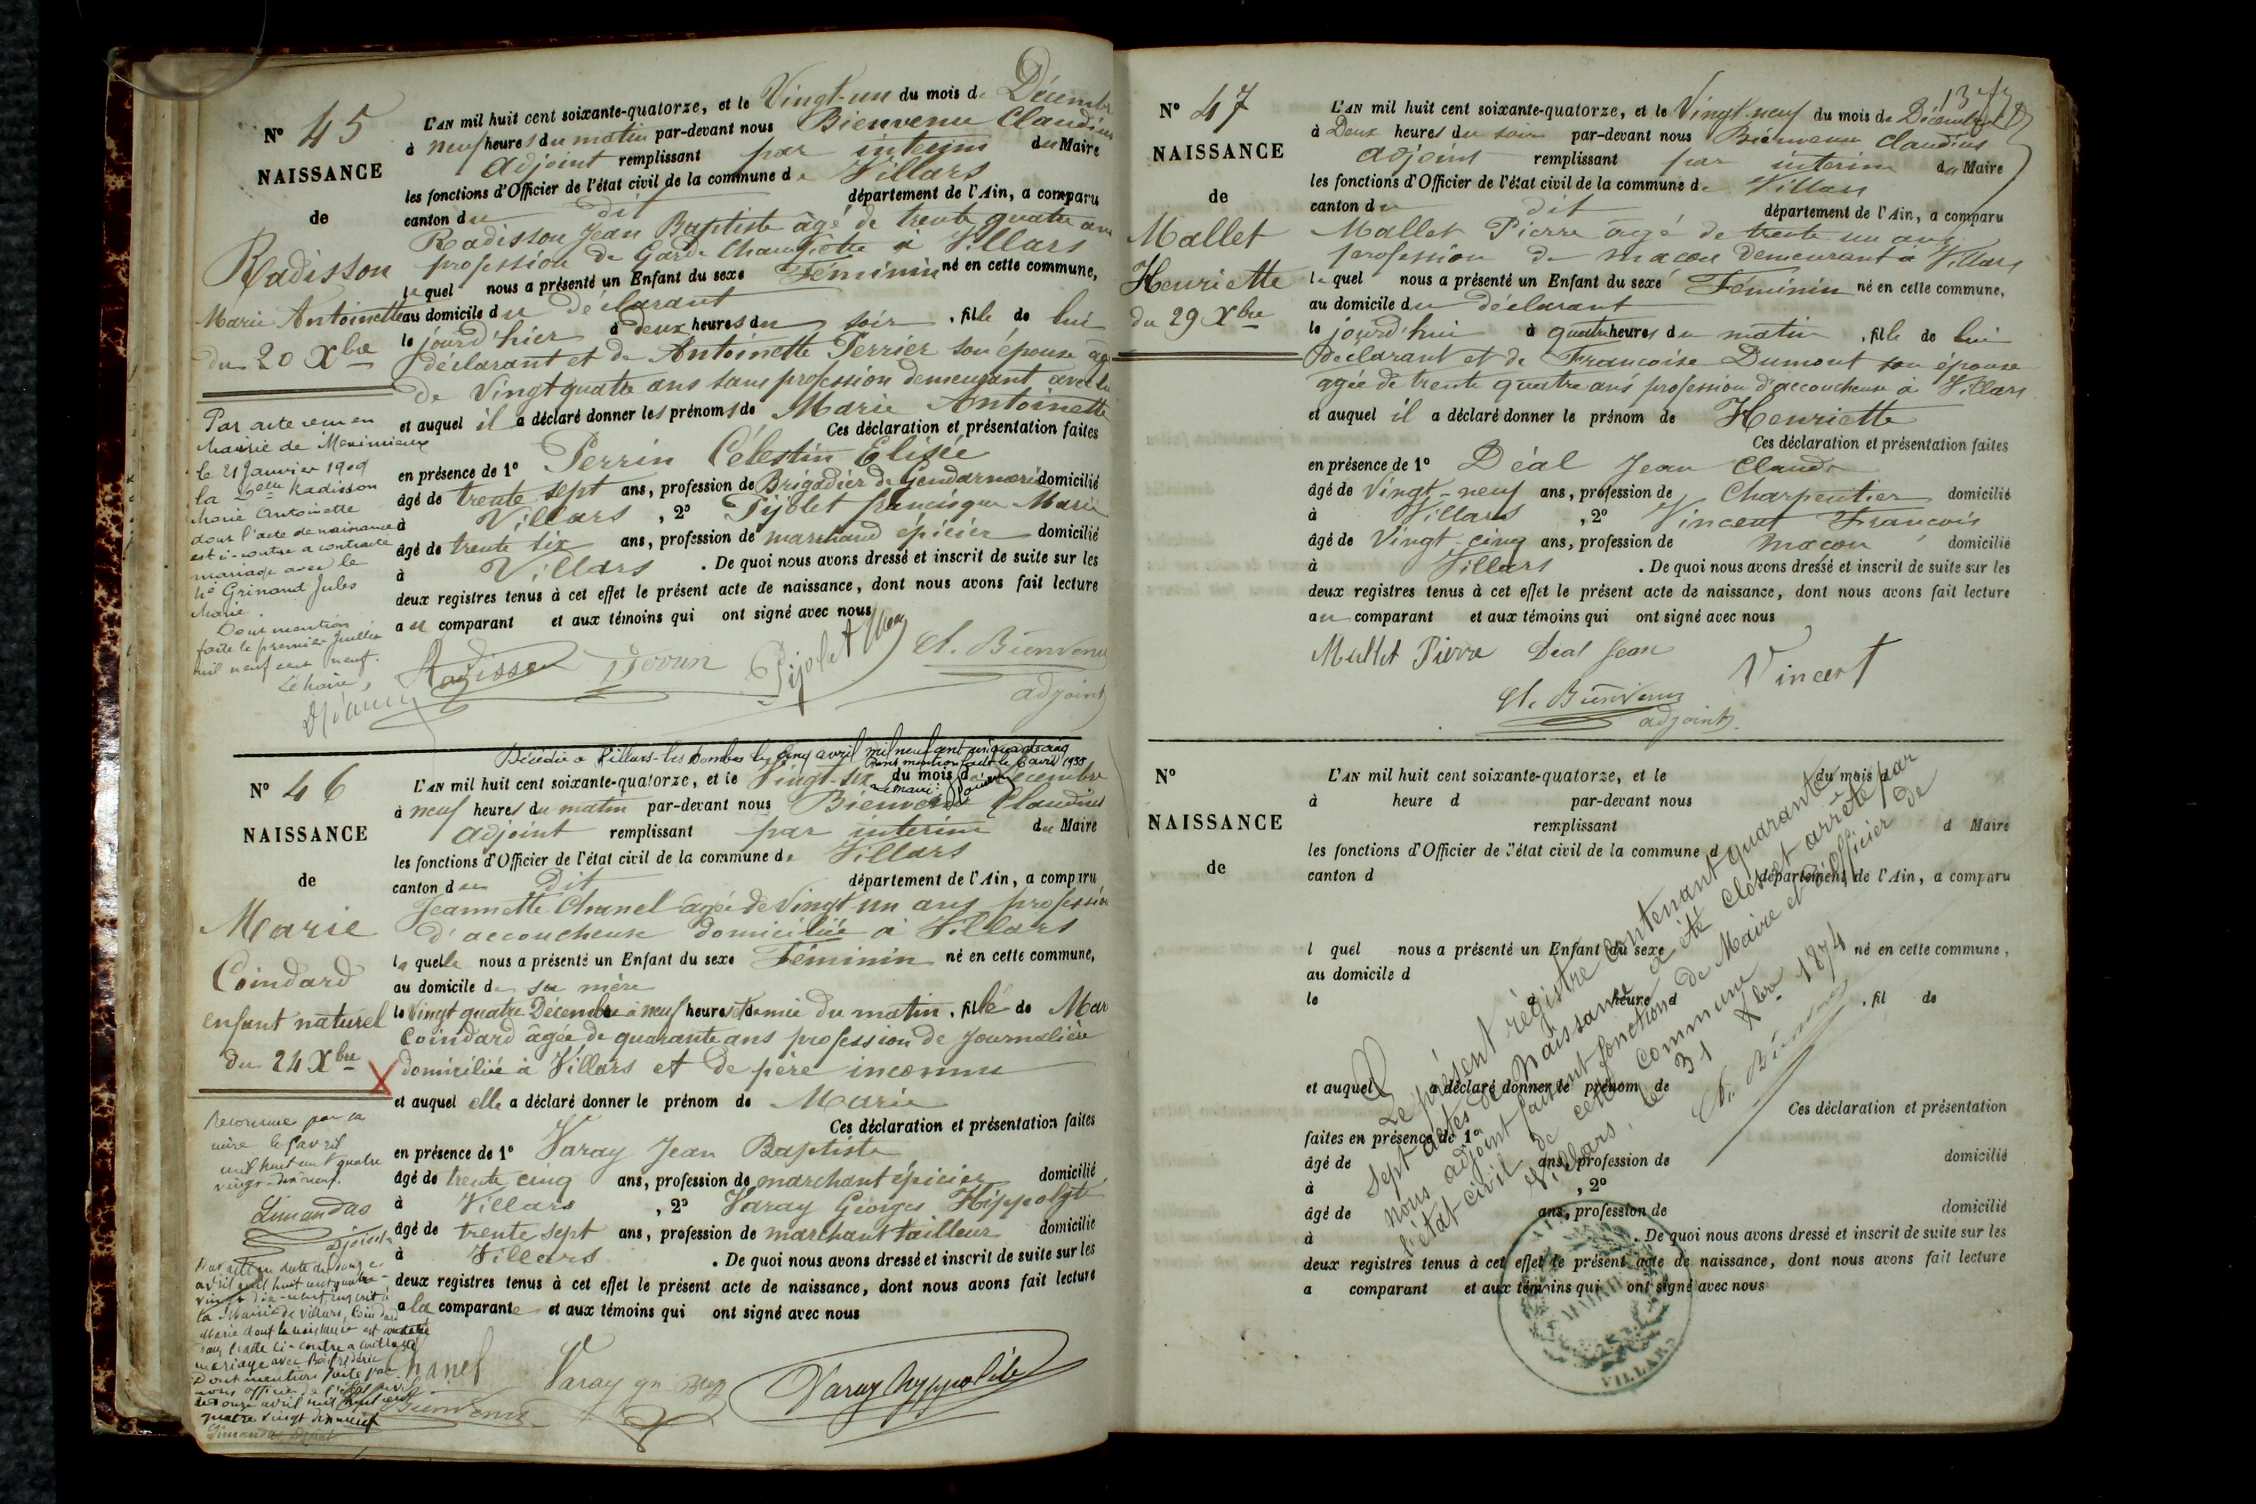 N° 45
NAISSANCE
de
Radisson
Marie Antoinette
du 20 Xbre
Par acte reçu en
Mairie de Meximieux
le 21 Janvier 1909
la Delle Radisson
Marie Antoinette
dont l'acte de naissance
est ci-contre a contracté
mariage avec le
Grinand Jules
Marie.
Dont mention
faite le premier Juillet
mil neuf cent neuf.
Le Maire,
L'AN mil huit cent soixante-quatorze, et le Vingt-un du mois de Décembre
à neuf heures du matin par-devant nous Bienvenu Claudius
adjoint remplissant par interim du Maire
les fonctions d'Officier de l'état civil de la commune de Villars
canton du dit département de l'Ain, a comparu
Radisson Jean Baptiste âgé de trente quatre ans
profession de Garde Champêtre à Villars
lequel nous a présenté un Enfant du sexe Féminin né en cette commune,
au domicile du déclarant
le jourd'hier à deux heures du soir, fille de lui
déclarant et de Antoinette Perrier son épouse âgée
de Vingt quatre ans sans profession demeurant avec lui
et auquel il a déclaré donner les prénoms de Marie Antoinette
Ces déclaration et présentation faites
en présence de 1° Perrin Célestin Elisée
âgé de trente sept ans, profession de Brigadier de Gendarmerie domicilié
à Villars, 2° Pijolet francisque Marie
âgé de trente six ans, profession de marchand épicier domicilié
à Villars. De quoi nous avons dressé et inscrit de suite sur les
deux registres tenus à cet effet le présent acte de naissance, dont nous avons fait lecture
au comparant et aux témoins qui ont signé avec nous
Radisson Perrin Pijolet Cl. Bienvenu
adjoint
Décédée à Villars-les-Dombes le cinq avril mil neuf cent cinquante cinq
Dont mention faite le 6 avril 1955
Le Maire:
N° 46
NAISSANCE
de
Marie
Coindard
enfant naturel
du 24 Xbre
X
Reconnue par sa
mère le avril
mil huit cent quatre
vingt-dix-neuf.
Limandas
Adjoint
Par acte en date du onze
avril mil huit cent quatre-
vingt dix-neuf inscrit à
la Mairie de Villars, Coindard
Marie dont la naissance est constatée
par l'acte ci-contre a contracté
mariage avec Frédéric
Dont mention faite par
nous officier de l'état civil
le onze avril mil huit cent
quatre vingt dix neuf
Limandas
L'AN mil huit cent soixante-quatorze, et le Vingt-six du mois de Décembre
à neuf heures du matin par-devant nous Bienvenu Claudius
adjoint remplissant par interim du Maire
les fonctions d'Officier de l'état civil de la commune de Villars
canton du dit département de l'Ain, a comparu
Jeannette Chanel agée de Vingt-un ans profession
d'accoucheuse domiciliée à Villars
laquelle nous a présenté un Enfant du sexe Féminin né en cette commune,
au domicile de sa mère
le Vingt quatre Décembre à neuf heures et demie du matin, fille de Marie
Coindard âgée de quarante ans profession de Journalière
domiciliée à Villars et de père inconnu
et auquel elle a déclaré donner le prénom de Marie
Ces déclaration et présentation faites
en présence de 1° Varay Jean Baptiste
âgé de trente cinq ans, profession de marchant épicier domicilié
à Villars, 2° Varay Georges Hippolyte
âgé de trente sept ans, profession de marchant tailleur domicilié
à Villars. De quoi nous avons dressé et inscrit de suite sur les
deux registres tenus à cet effet le présent acte de naissance, dont nous avons fait lecture
a la comparante et aux témoins qui ont signé avec nous
Chanel Varay Varay hyppolite
Bienvenu
137
N° 47
NAISSANCE
de
Mallet
Henriette
du 29 Xbre
L'AN mil huit cent soixante-quatorze, et le Vingt-neuf du mois de Décembre
à Deux heures du soir par-devant nous Bienvenu Claudius
adjoint remplissant par interim du Maire
les fonctions d'Officier de l'état civil de la commune de Villars
canton du dit département de l'Ain, a comparu
Mallet Pierre âgé de trente un ans
profession de macon demeurant à Villars
lequel nous a présenté un Enfant du sexe Féminin né en cette commune,
au domicile du déclarant
le jourd'hui à quatre heures du matin, fille de lui
déclarant et de Francoise Dumont son épouse
agée de trente quatre ans profession d'accoucheuse à Villars
et auquel il a déclaré donner le prénom de Henriette
Ces déclaration et présentation faites
en présence de 1° Déal Jean Claude
âgé de Vingt-neuf ans, profession de Charpentier domicilié
à Villars, 2° Vincent Francois
âgé de Vingt-cinq ans, profession de macon domicilié
à Villars. De quoi nous avons dressé et inscrit de suite sur les
deux registres tenus à cet effet le présent acte de naissance, dont nous avons fait lecture
au comparant et aux témoins qui ont signé avec nous
Mallet Pierre Deal Jean Vincent
Cl. Bienvenu
adjoint
N°
NAISSANCE
de
L'AN mil huit cent soixante-quatorze, et le du mois d
à heure d par-devant nous
remplissant d Maire
les fonctions d'Officier de l'état civil de la commune d
canton d département de l'Ain, a comparu
l quel nous a présenté un Enfant du sexe né en cette commune,
au domicile d
le à heure d, fil de
et auquel a déclaré donner le prénom de
Ces déclaration et présentation
faites en présence de 1°
âgé de ans, profession de domicilié
à, 2°
âgé de ans, profession de domicilié
à. De quoi nous avons dressé et inscrit de suite sur les
deux registres tenus à cet effet le présent acte de naissance, dont nous avons fait lecture
a comparant et aux témoins qui ont signé avec nous
Le présent régistre contenant quarante-
sept actes de Naissance a été clos et arrêté par
nous adjoint faisant fonctions de Maire et d'officier de
l'état civil de cette commune
Villars, le 31 Xbre 1874
Cl. Bienvenu
MAIRIE
VILLARS